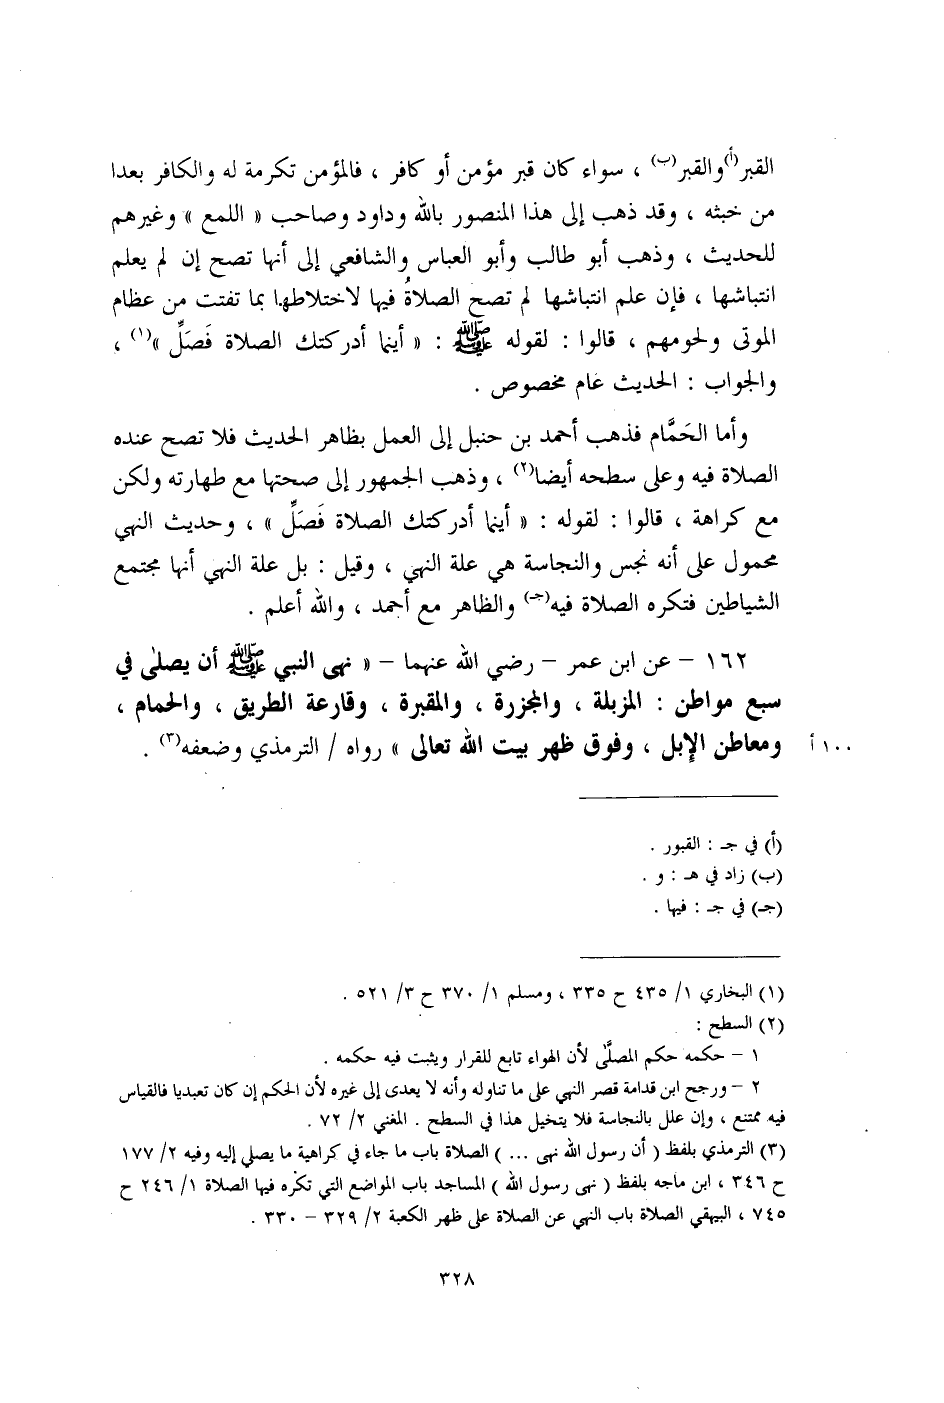 القبر(أ) والقبر(ب) ، سواء كان قبر مؤمن أو كافر ، فالمؤمن تكرمة له والكافر بعدا
من خبثه ، وقد ذهب إلى هذا المنصور بالله وداود وصاحب « اللمع » وغيرهم
للحديث ، وذهب أبو طالب وأبو العباس والشافعي إلى أنها تصح إن لم يعلم
انتباشها ، فإن علم انتباشها لم تصح الصلاةُ فيها لاختلاطها بما تفتت من عظام
الموتى ولحومهم ، قالوا : لقوله ﷺ : « أينما أدركتك الصلاة فَصَلِّ »(١) ،
والجواب : الحديث عام مخصوص .
وأما الحَمَّام فذهب أحمد بن حنبل إلى العمل بظاهر الحديث فلا تصح عنده
الصلاة فيه وعلى سطحه أيضا(٢) ، وذهب الجمهور إلى صحتها مع طهارته ولكن
مع كراهة ، قالوا : لقوله : « أينما أدركتك الصلاة فَصَلِّ » ، وحديث النهي
محمول على أنه نجس والنجاسة هي علة النهي ، وقيل : بل علة النهي أنها مجتمع
الشياطين فتكره الصلاة فيه(جـ) والظاهر مع أحمد ، والله أعلم .
١٦٢ – عن ابن عمر – رضي الله عنهما – « نهى النبي ﷺ أن يصلى في
سبع مواطن : المزبلة ، والمجزرة ، والمقبرة ، وقارعة الطريق ، والحمام ،
ومعاطن الإبل ، وفوق ظهر بيت الله تعالى » رواه / الترمذي وضعفه(٣) . ١٠٠ أ
(أ) في جـ : القبور .
(ب) زاد في هـ : و .
(جـ) في جـ : فيها .
(١) البخاري ١/ ٤٣٥ ح ٣٣٥ ، ومسلم ١/ ٣٧٠ ح ٣/ ٥٢١ .
(٢) السطح :
١ – حكمه حكم المصلَّى لأن الهواء تابع للقرار ويثبت فيه حكمه .
٢ – ورجح ابن قدامة قصر النهي على ما تناوله وأنه لا يعدى إلى غيره لأن الحكم إن كان تعبديا فالقياس
فيه ممتنع ، وإن علل بالنجاسة فلا يتخيل هذا في السطح . المغني ٢/ ٧٢ .
(٣) الترمذي بلفظ ( أن رسول الله نهى ... ) الصلاة باب ما جاء في كراهية ما يصلي إليه وفيه ٢/ ١٧٧
ح ٣٤٦ ، ابن ماجه بلفظ ( نهى رسول الله ) المساجد باب المواضع التي تكره فيها الصلاة ١/ ٢٤٦ ح
٧٤٥ ، البيهقي الصلاة باب النهي عن الصلاة على ظهر الكعبة ٢/ ٣٢٩ – ٣٣٠ .
٣٢٨